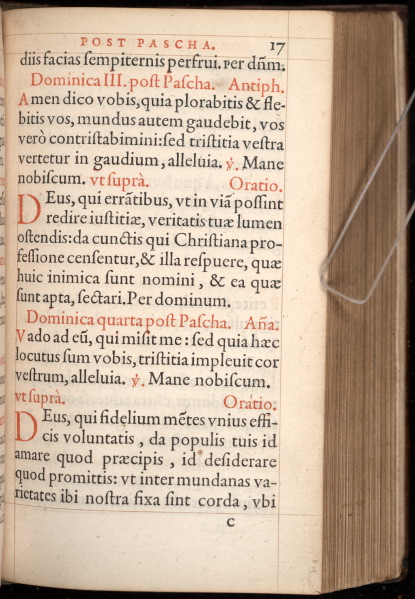 POST PASCHA. 17
diis facias ſempiternis perfrui. per dn̄m.
Dominica III. poſt Paſcha. Antiph.
Amen dico vobis, quia plorabitis & fle-
bitis vos, mundus autem gaudebit, vos
verò contriſtabimini: ſed triſtitia veſtra
vertetur in gaudium, alleluia. ℣. Mane
nobiſcum. vt ſuprà. Oratio.
DEus, qui errãtibus, vt in viã poſſint
redire iuſtitiæ, veritatis tuæ lumen
oſtendis: da cunctis qui Chriſtiana pro-
feſſione cenſentur, & illa reſpuere, quæ
huic inimica ſunt nomini, & ea quæ
ſunt apta, ſectari. Per dominum.
Dominica quarta poſt Paſcha. Aña.
Vado ad eũ, qui miſit me: ſed quia hæc
locutus ſum vobis, triſtitia impleuit cor
veſtrum, alleluia. ℣. Mane nobiſcum.
vt ſuprà. Oratio.
DEus, qui fidelium mẽtes vnius effi-
cis voluntatis, da populis tuis id
amare quod præcipis, id deſiderare
quod promittis: vt inter mundanas va-
rietates ibi noſtra fixa ſint corda, vbi
c